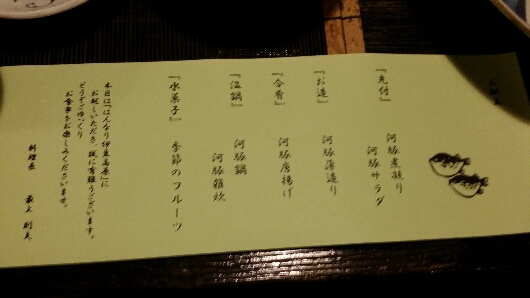 『先付』
河豚煮凝り
河豚サラダ
『お造』
河豚薄造り
『合肴』
河豚唐揚げ
『温鍋』
河豚鍋
河豚雑炊
『水菓子』
季節のフルーツ
本日は「はんなり伊豆高原」に
お越しいただき、誠に有難うございます。
どうぞごゆっくり
お食事をお楽しみくださいませ。
料理長